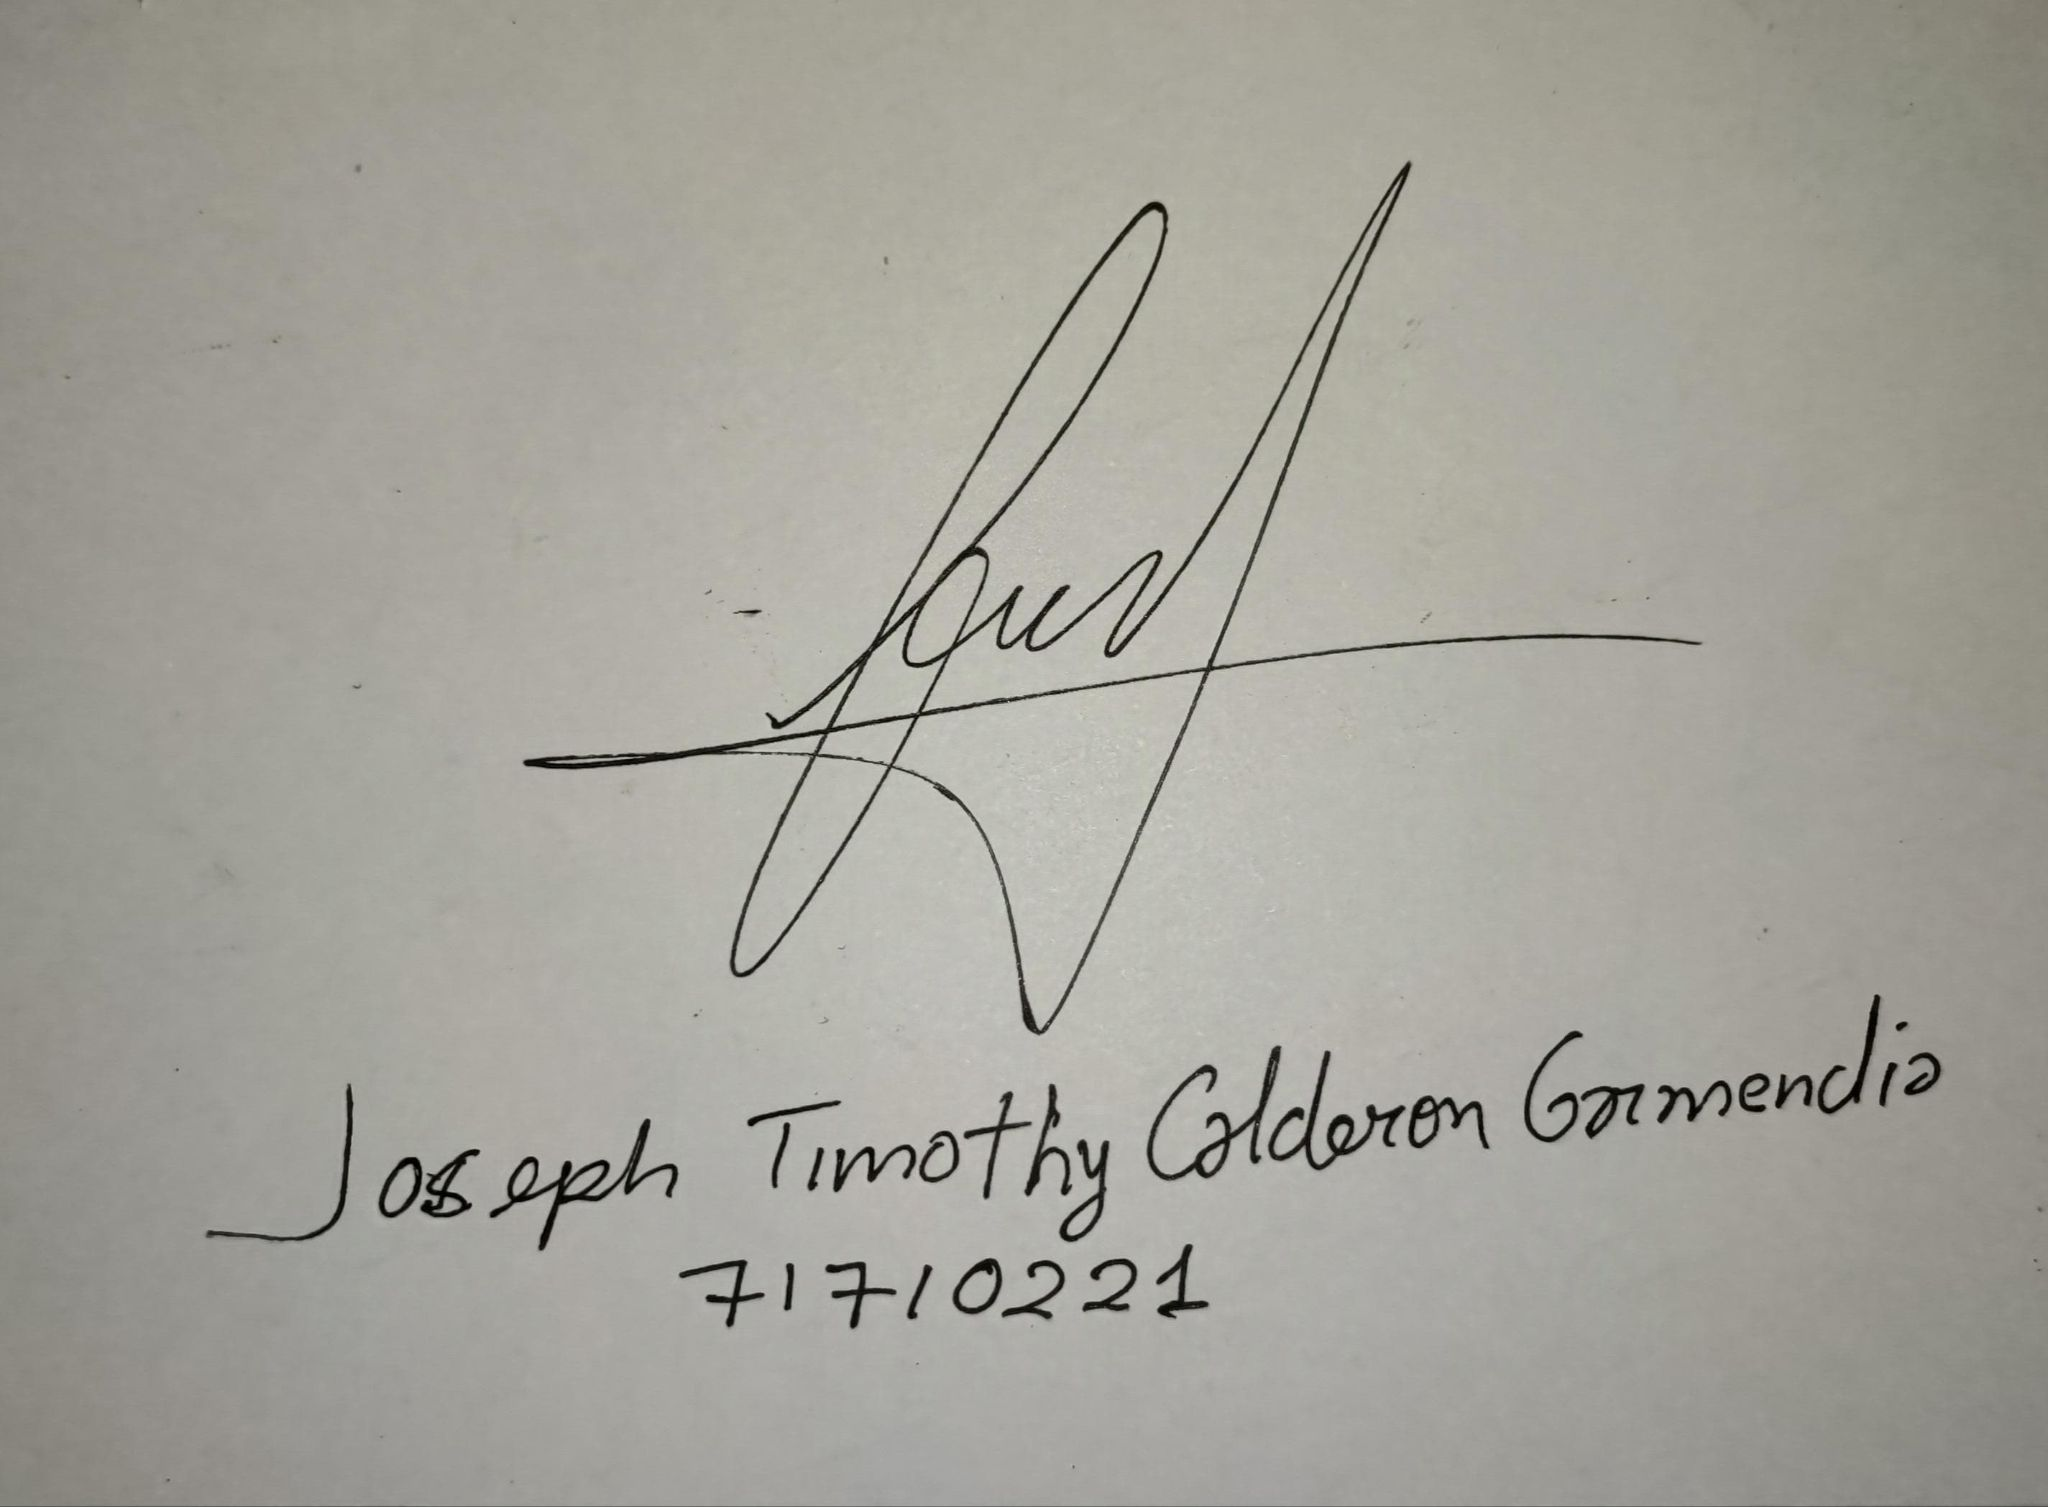 Joseph Timothy Calderon Garmendia
71710221